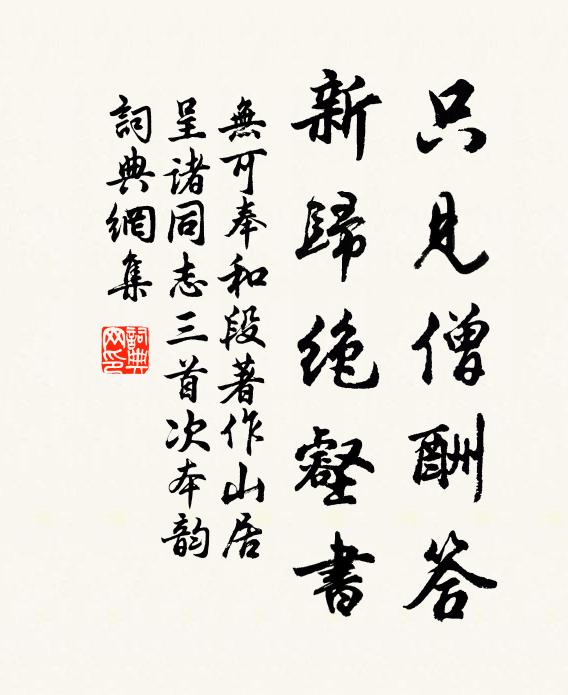 只見僧酬答
新歸絶壑書
無可奉和段著作山居
呈諸同志三首次本韵
詞典網集
詞典
网印